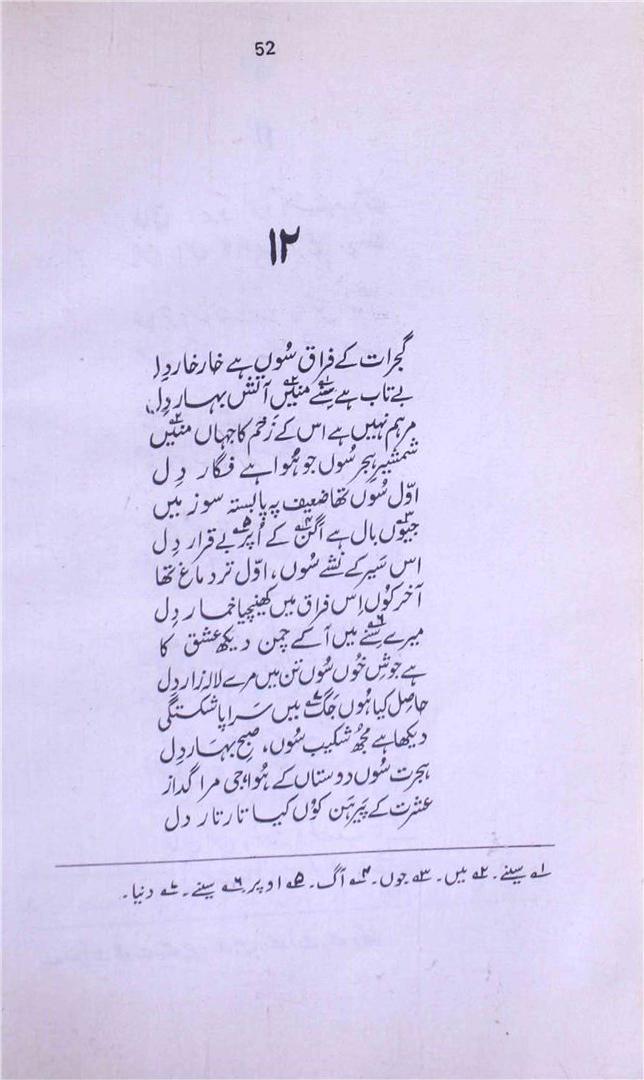 52
۱۲
گجرات کے فراق سُوں ہے خار خار دِل
بے تاب ہے سِنے۱؎ منیں۲؎ آتش بہار دِل
مرہم نہیں ہے اس کے زخم کا جہاں منیں۲؎
شمشیرِ ہجر سُوں جو ہُوا ہے فگار دِل
اوّل سُوں تھا ضعیف پہ پابستہ سوز میں
جیوں۳؎ بال ہے اگن۴؎ کے اُپر۵؎ بے قرار دِل
اس سَیر کے نشے سُوں، اوّل تر دماغ تھا
آخر کوں اِس فراق میں کھینچیا خمار دِل
میرے سِنے۶؎ میں آ کے چمن دیکھ عشق کا
ہے جوشِ خُوں سُوں تن میں مرے لالہ زار دِل
حاصل کیا ہُوں جگ۷؎ میں سَراپا شکستگی
دیکھا ہے مجھ شکیب سُوں، صبحِ بہار دِل
ہجرت سُوں دوستاں کے ہُوا، جی مرا گداز
عشرت کے پَیرہن کوں کیا تار تار دل
۱؎ سینے۔ ۲؎ میں۔ ۳؎ جوں۔ ۴؎ آگ۔ ۵؎ اوپر ۶؎ سینے۔ ۷؎ دنیا۔